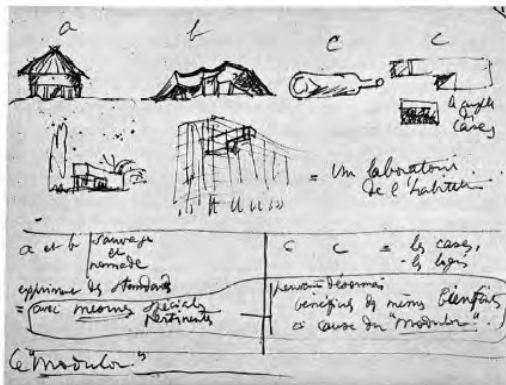 a b c c
à
cases
= Un laboratoire
de l'habiter
a et b sauvage
et
nomade
expriment des standards
= avec mesures spéciales
pertinentes
c c = les cases,
- les logis
peuvent désormais
bénéficier des mêmes bienfaits
à cause du "modulor".
Le "Modulor"